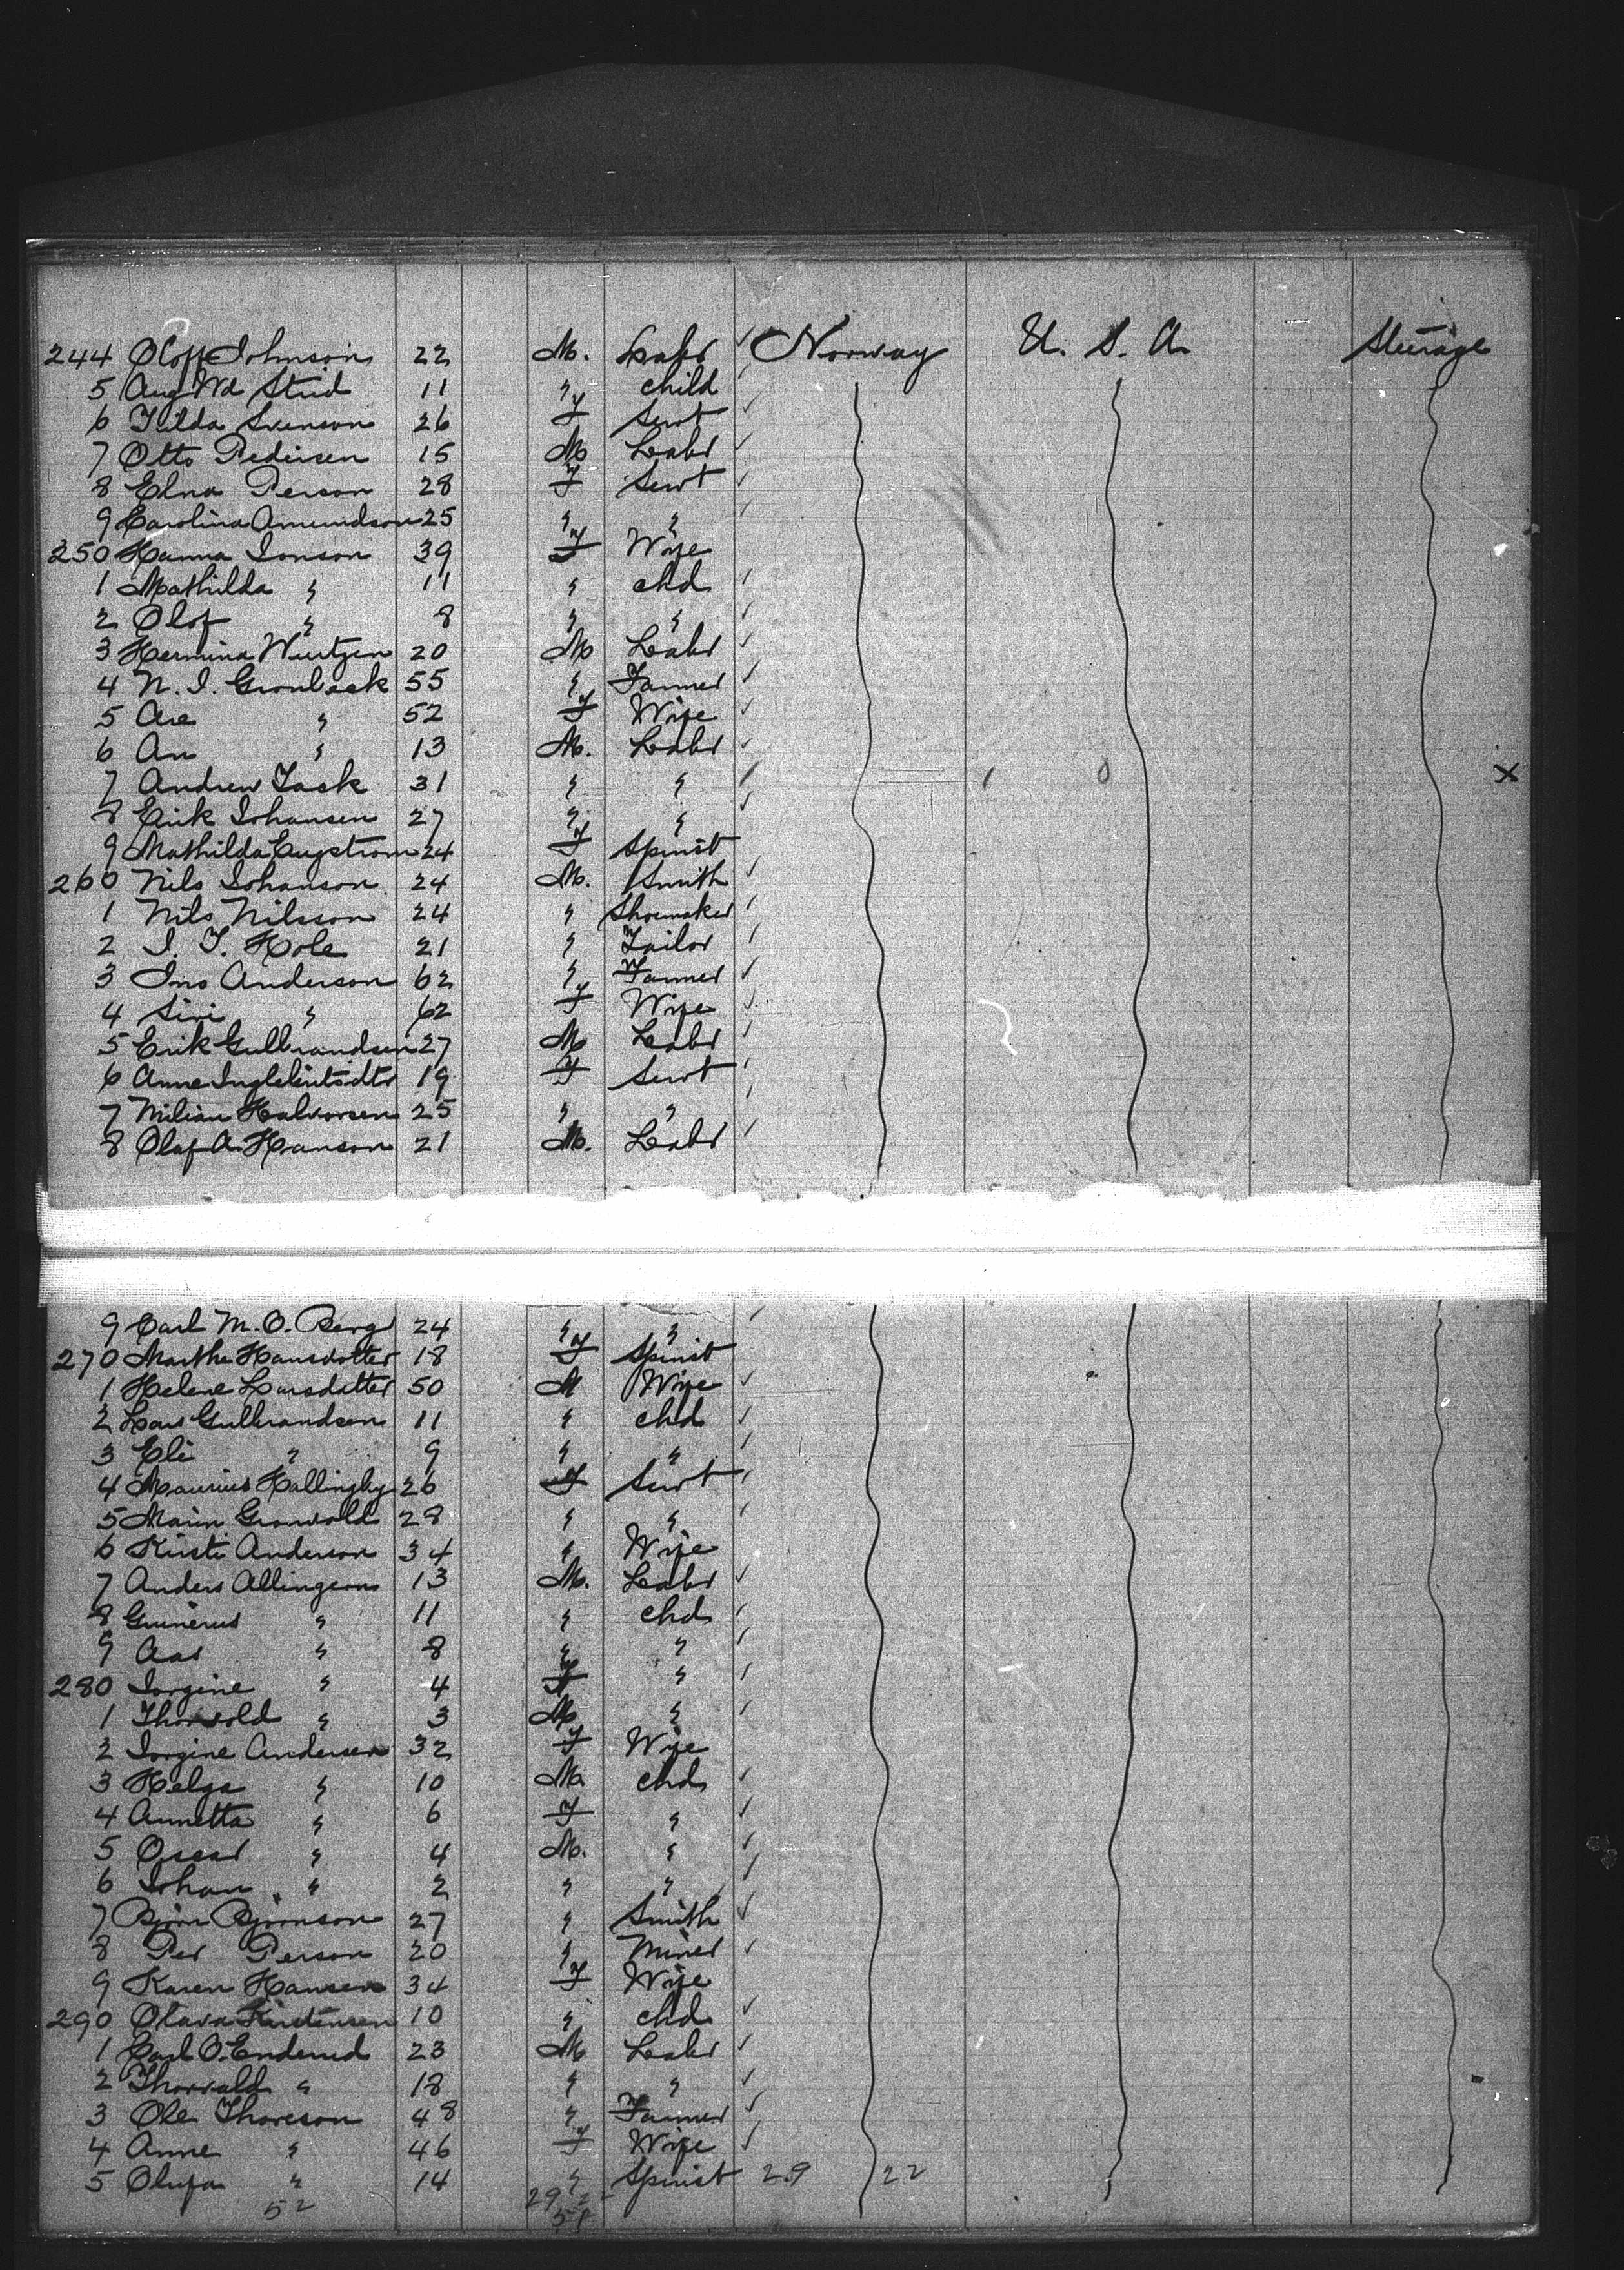 244 Oloff Johnson 22 M. Labr Norway U. S. A. Steerage
5 Aug Wd Strid 11 " child
6 Tilda Svenson 26 F Servt
7 Otto Pedersen 15 M Labr
8 Elna Person 28 F Servt
9 Carolina Amundson 25 " "
250 Hanna Jonson 39 F Wife
1 Mathilda " 11 " chd
2 Olof " 8 " "
3 Hermina Wurtzen 20 M Labr
4 N. J. Gronbeck 55 " Farmer
5 Ane " 52 F Wife
6 An " 13 M. Labr
7 Andrew Jack 31 " " X
8 Erik Johansen 27 " "
9 Mathilda Engstrom 24 F Spinst
260 Nils Johanson 24 M. Smith
1 Nils Nilsson 24 " Shoemaker
2 J. T. Hole 21 " Tailor
3 Jno Anderson 62 " Farmer
4 Siri " 62 F Wife
5 Erik Gulbrandsen 27 M Labr
6 Anne Inglebritsdtr 19 F Servt
7 Milian Halvorsen 25 " "
8 Olaf A Hanson 21 M. Labr
9 Carl M. O. Berg 24 " "
270 Marthe Hansdotter 18 F Spinst
1 Helene Larsdatter 50 M Wife
2 Lars Gulbrandsen 11 " chd
3 Eli " 9 " "
4 Maurius Hallingby 26 F Servt
5 Maren Gronvold 28 " "
6 Kirsti Anderson 34 " Wife
7 Anders Allingson 13 M. Labr
8 Gunerius " 11 " chd
9 Aas " 8 " "
280 Jorgine " 4 F "
1 Thorvold " 3 M "
2 Jorgine Andersen 32 F Wife
3 Helga " 10 M chd
4 Annetta " 6 F "
5 Oscar " 4 M. "
6 Johan " 2 " "
7 Bjorn Bjornson 27 " Smith
8 Per Person 20 " Miner
9 Karen Hansen 34 F Wife
290 Olava Kristensen 10 " chd
1 Carl O. Enderud 23 M Labr
2 Thorvald " 18 " "
3 Ole Thoreson 48 " Farmer
4 Anne " 46 F Wife
5 Olufa " 14 " Spinst 29 22
52 29 22
51